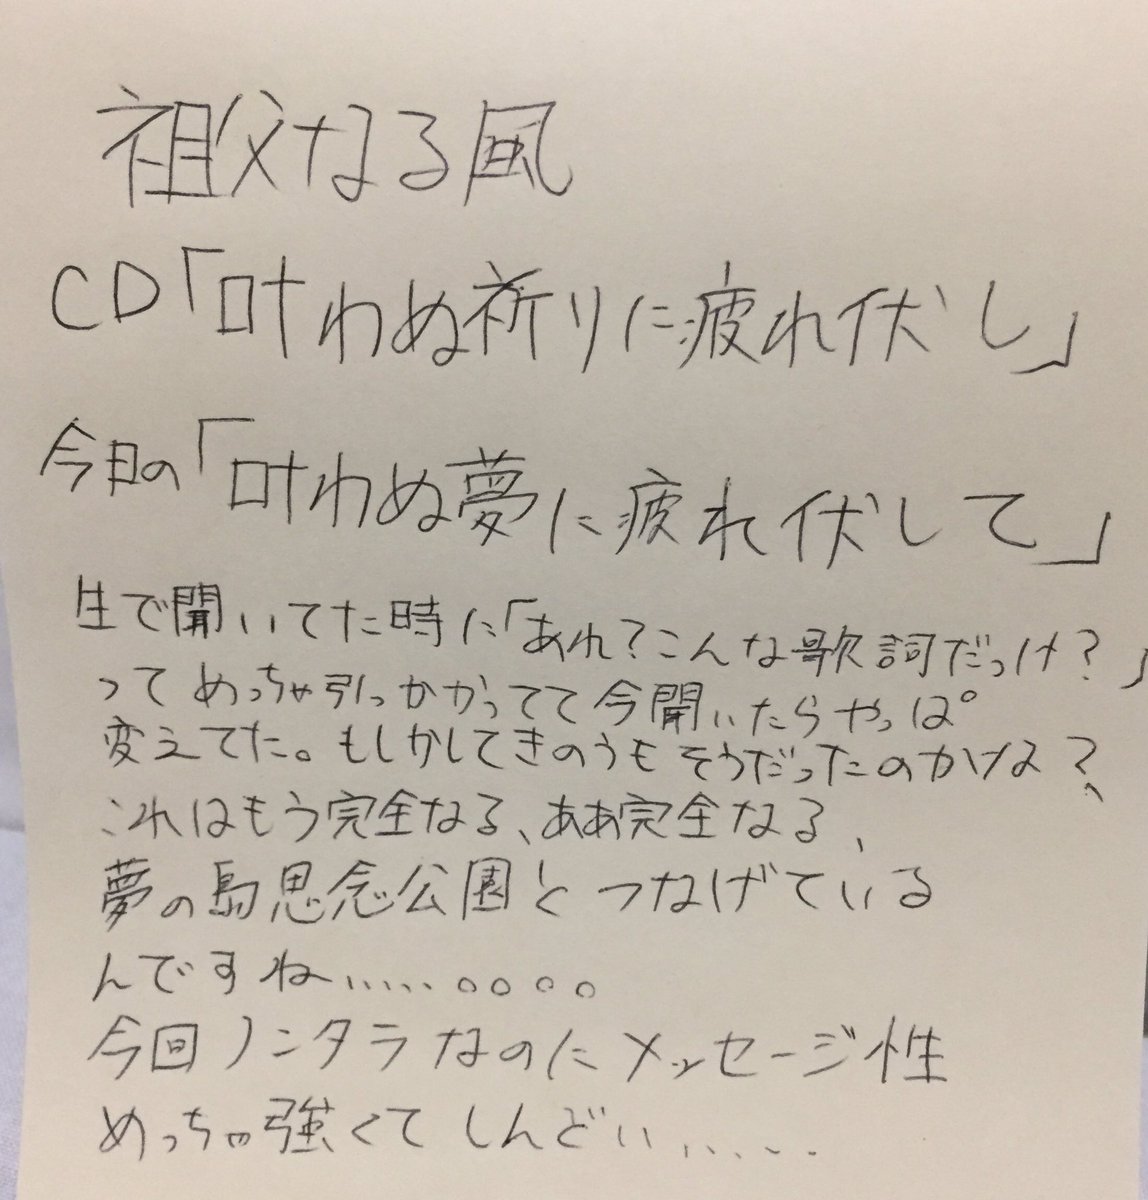 祖父なる風
CD「叶わぬ祈りに疲れ伏し」
今日の「叶わぬ夢に疲れ伏して」
生で聞いてた時に「あれ？こんな歌詞だっけ？」
ってめっちゃ引っかかってて今聞いたらやっぱ
変えてた。もしかしてきのうもそうだったのかな？
これはもう完全なる、ああ完全なる、
夢の島思念公園とつなげている
んですね.....。。。。
今回ノンタラなのにメッセージ性
めっちゃ強くてしんどい.....